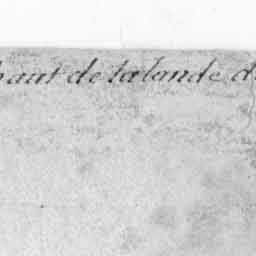 haut de talande d